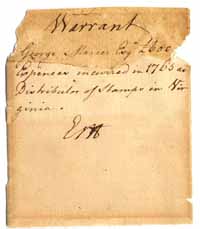 Warrant
George Mercer Esqr £600
Expences incurred in 1765 as
Distributor of Stamps in Vir
ginia.